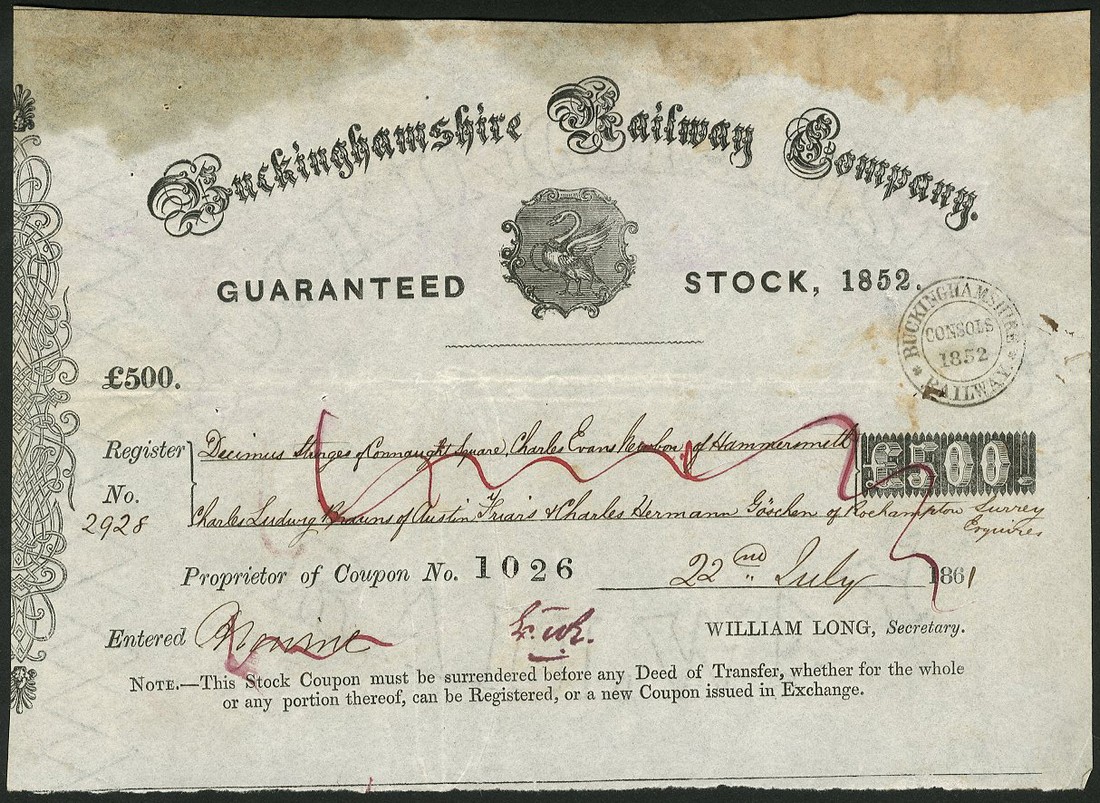 Buckinghamshire Railway Company.
GUARANTEED STOCK, 1852.
BUCKINGHAMSHIRE RAILWAY
CONSOLS
1852
£500.
Register
No.
2928
Decimus Sturges of Connaught Square, Charles Evans of Hammersmith
£500
Charles Ludwig Bruins of Austin Friars & Charles Hermann Göschen of Roehampton Surrey
Esquires
Proprietor of Coupon No. 1026 22nd July 1861
Entered
WILLIAM LONG, Secretary.
NOTE.—This Stock Coupon must be surrendered before any Deed of Transfer, whether for the whole
or any portion thereof, can be Registered, or a new Coupon issued in Exchange.